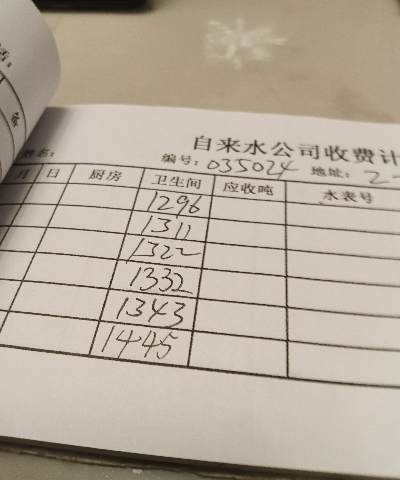 自来水公司收费计
姓名: 编号: 035024 地址: 2-
月 日 厨房 卫生间 应收吨 水表号
1296
1311
1322
1332
1343
1445